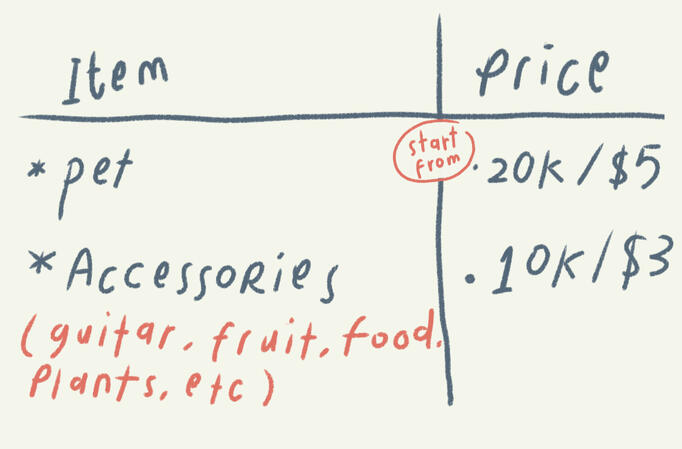 Item Price
* pet start from . 20K / $5
* Accessories . 10K / $3
(guitar, fruit, food.
Plants, etc)